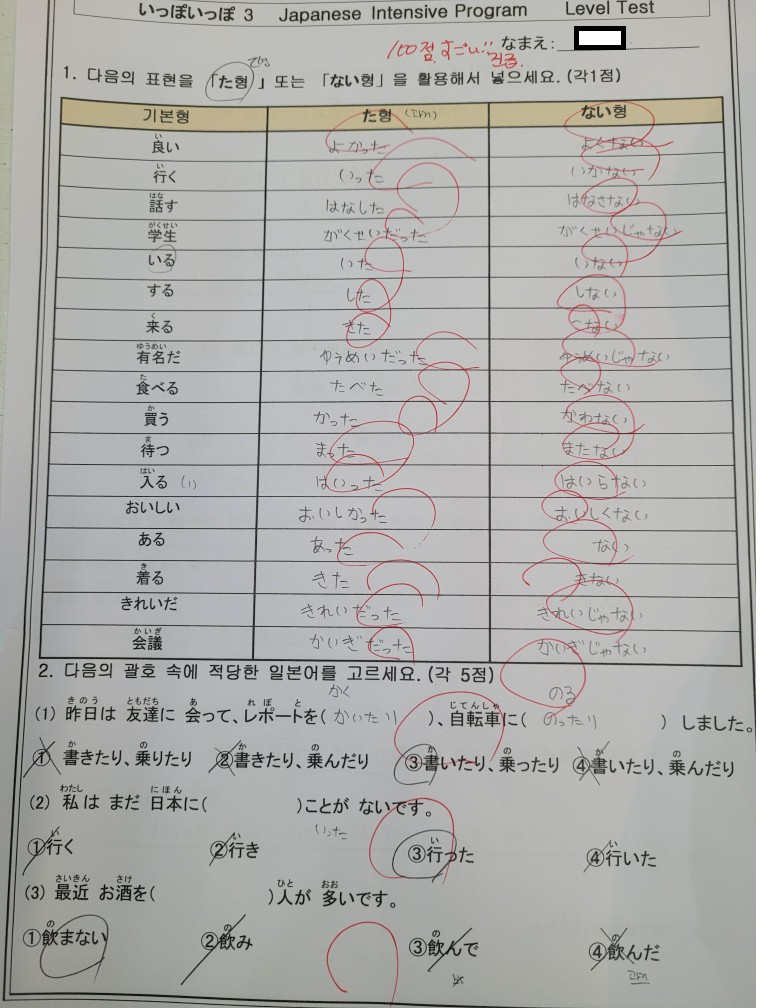 いっぽいっぽ 3 Japanese Intensive Program Level Test
100점 すごい!! なまえ:
1. 다음의 표현을 「た형」 또는 「ない형」을 활용해서 넣으세요. (각1점)
기본형 た형 (고버) ない형
良い よかった よくない
行く いった いかない
話す はなした はなさない
学生 がくせいだった がくせいじゃない
いる いた いない
する した しない
来る きた こない
有名だ ゆうめいだった ゆうめいじゃない
食べる たべた たべない
買う かった かわない
待つ まった またない
入る (1) はいった はいらない
おいしい おいしかった おいしくない
ある あった ない
着る きた きない
きれいだ きれいだった きれいじゃない
会議 かいぎだった かいぎじゃない
2. 다음의 괄호 속에 적당한 일본어를 고르세요. (각 5점)
かく のる
(1) 昨日は 友達に 会って、レポートを( かいたり )、自転車に( のったり ) しました。
① 書きたり、乗りたり ②書きたり、乗んだり ③書いたり、乗ったり ④書いたり、乗んだり
(2) 私は まだ 日本に( )ことが ないです。
いった
①行く ②行き ③行った ④行いた
(3) 最近 お酒を( )人が 多いです。
①飲まない ②飲み ③飲んで ④飲んだ